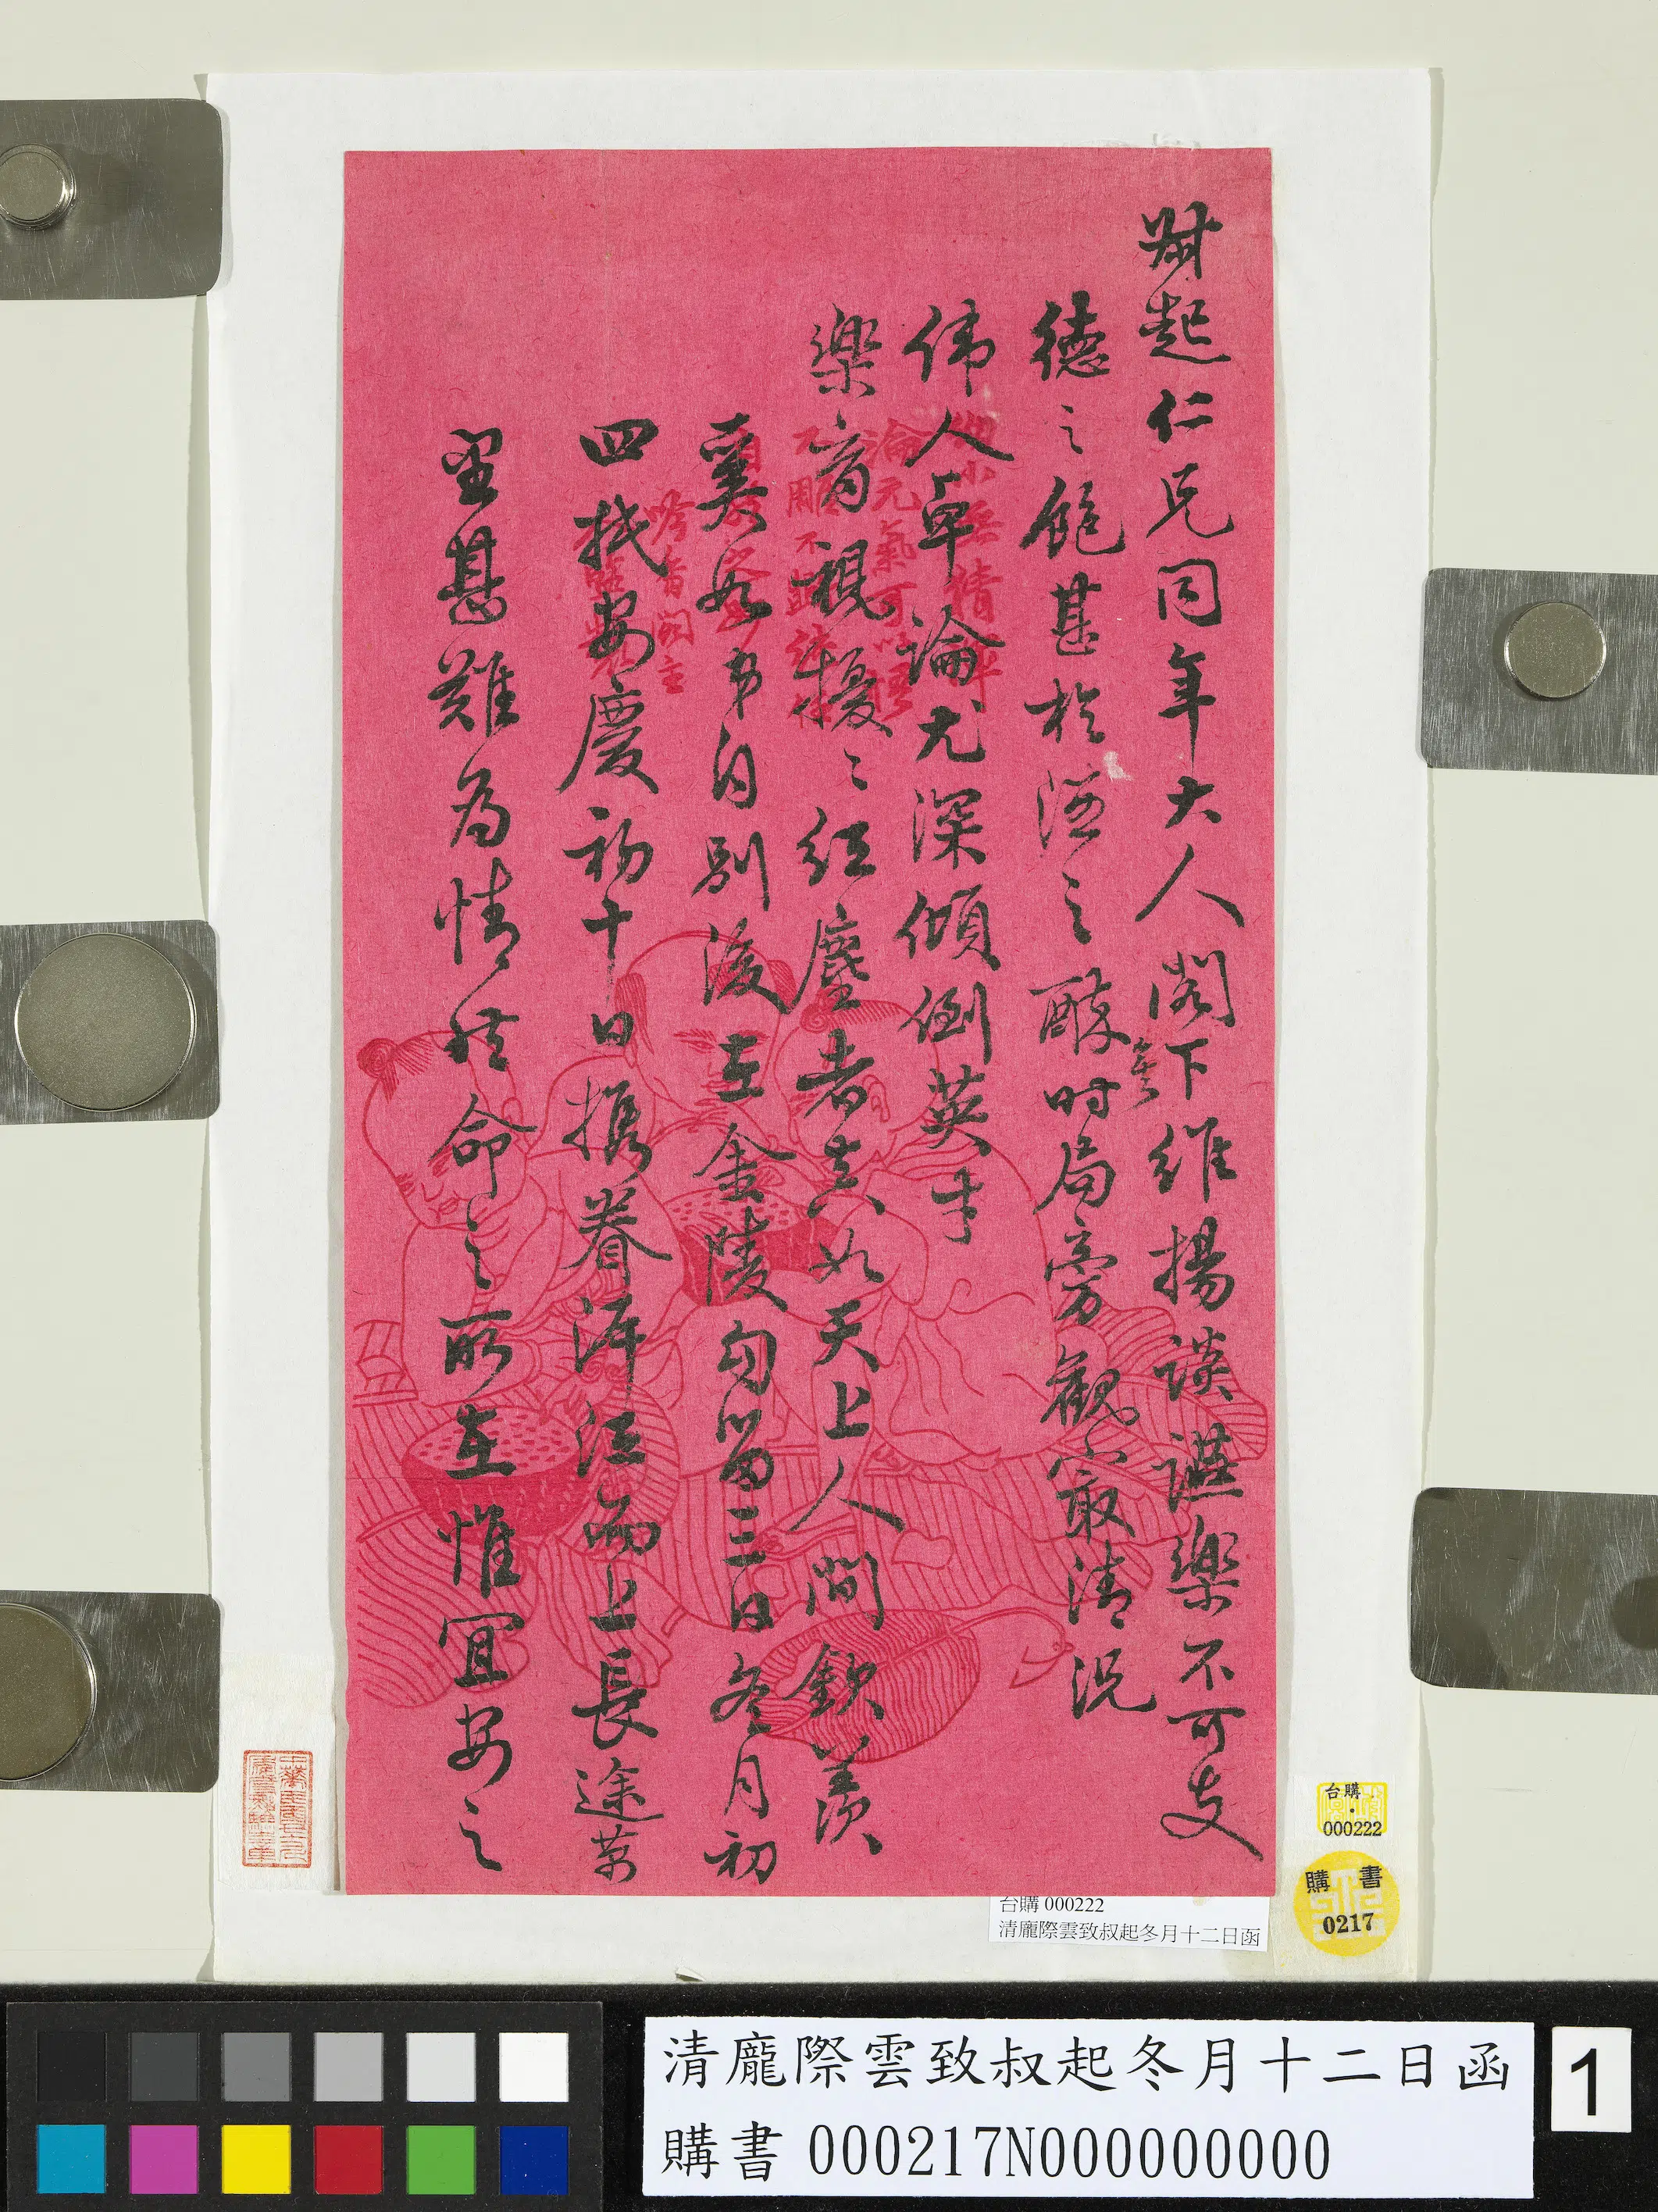 尗起仁兄同年大人閣下維揚談讌樂不可支
德之飽甚於酒之醉時局旁觀最清況
偉人卓論尤深傾倒英才
樂育視擾擾紅塵者真如天上人間欽羡
奚如弟自別後在金陵勾留三日冬月初
四抵安慶初十日攜眷泝江而上長途
甚難為情然命之所在惟宜安之
台購
000222
購書
0217
台購 000222
清龐際雲致叔起冬月十二日函
清龐際雲致叔起冬月十二日函
購書 000217N000000000
1